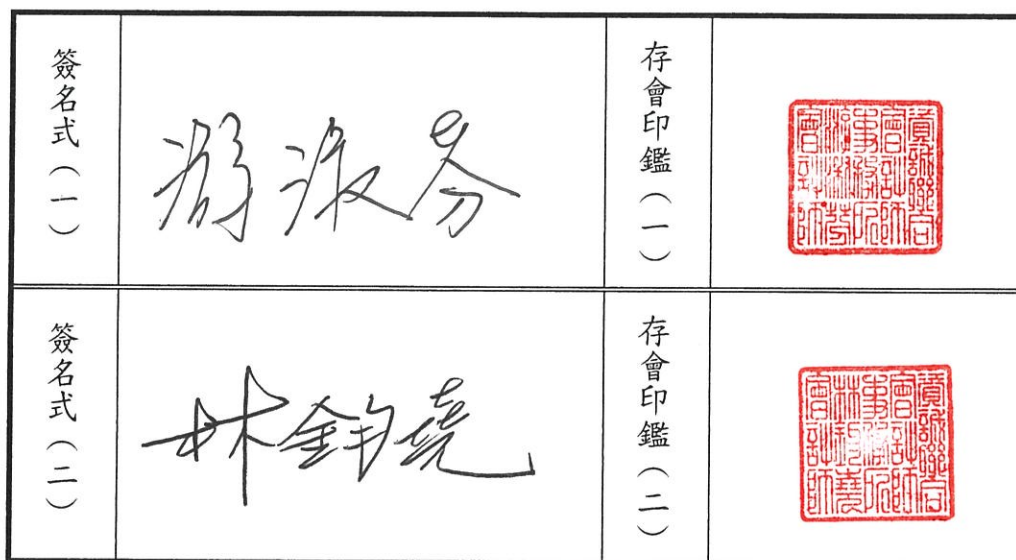 簽名式（一）
游淑芬
存會印鑑（一）
資誠聯合
會計師
事務所
游淑芬
會計師
簽名式（二）
林鈞堯
存會印鑑（二）
資誠聯合
會計師
事務所
林鈞堯
會計師